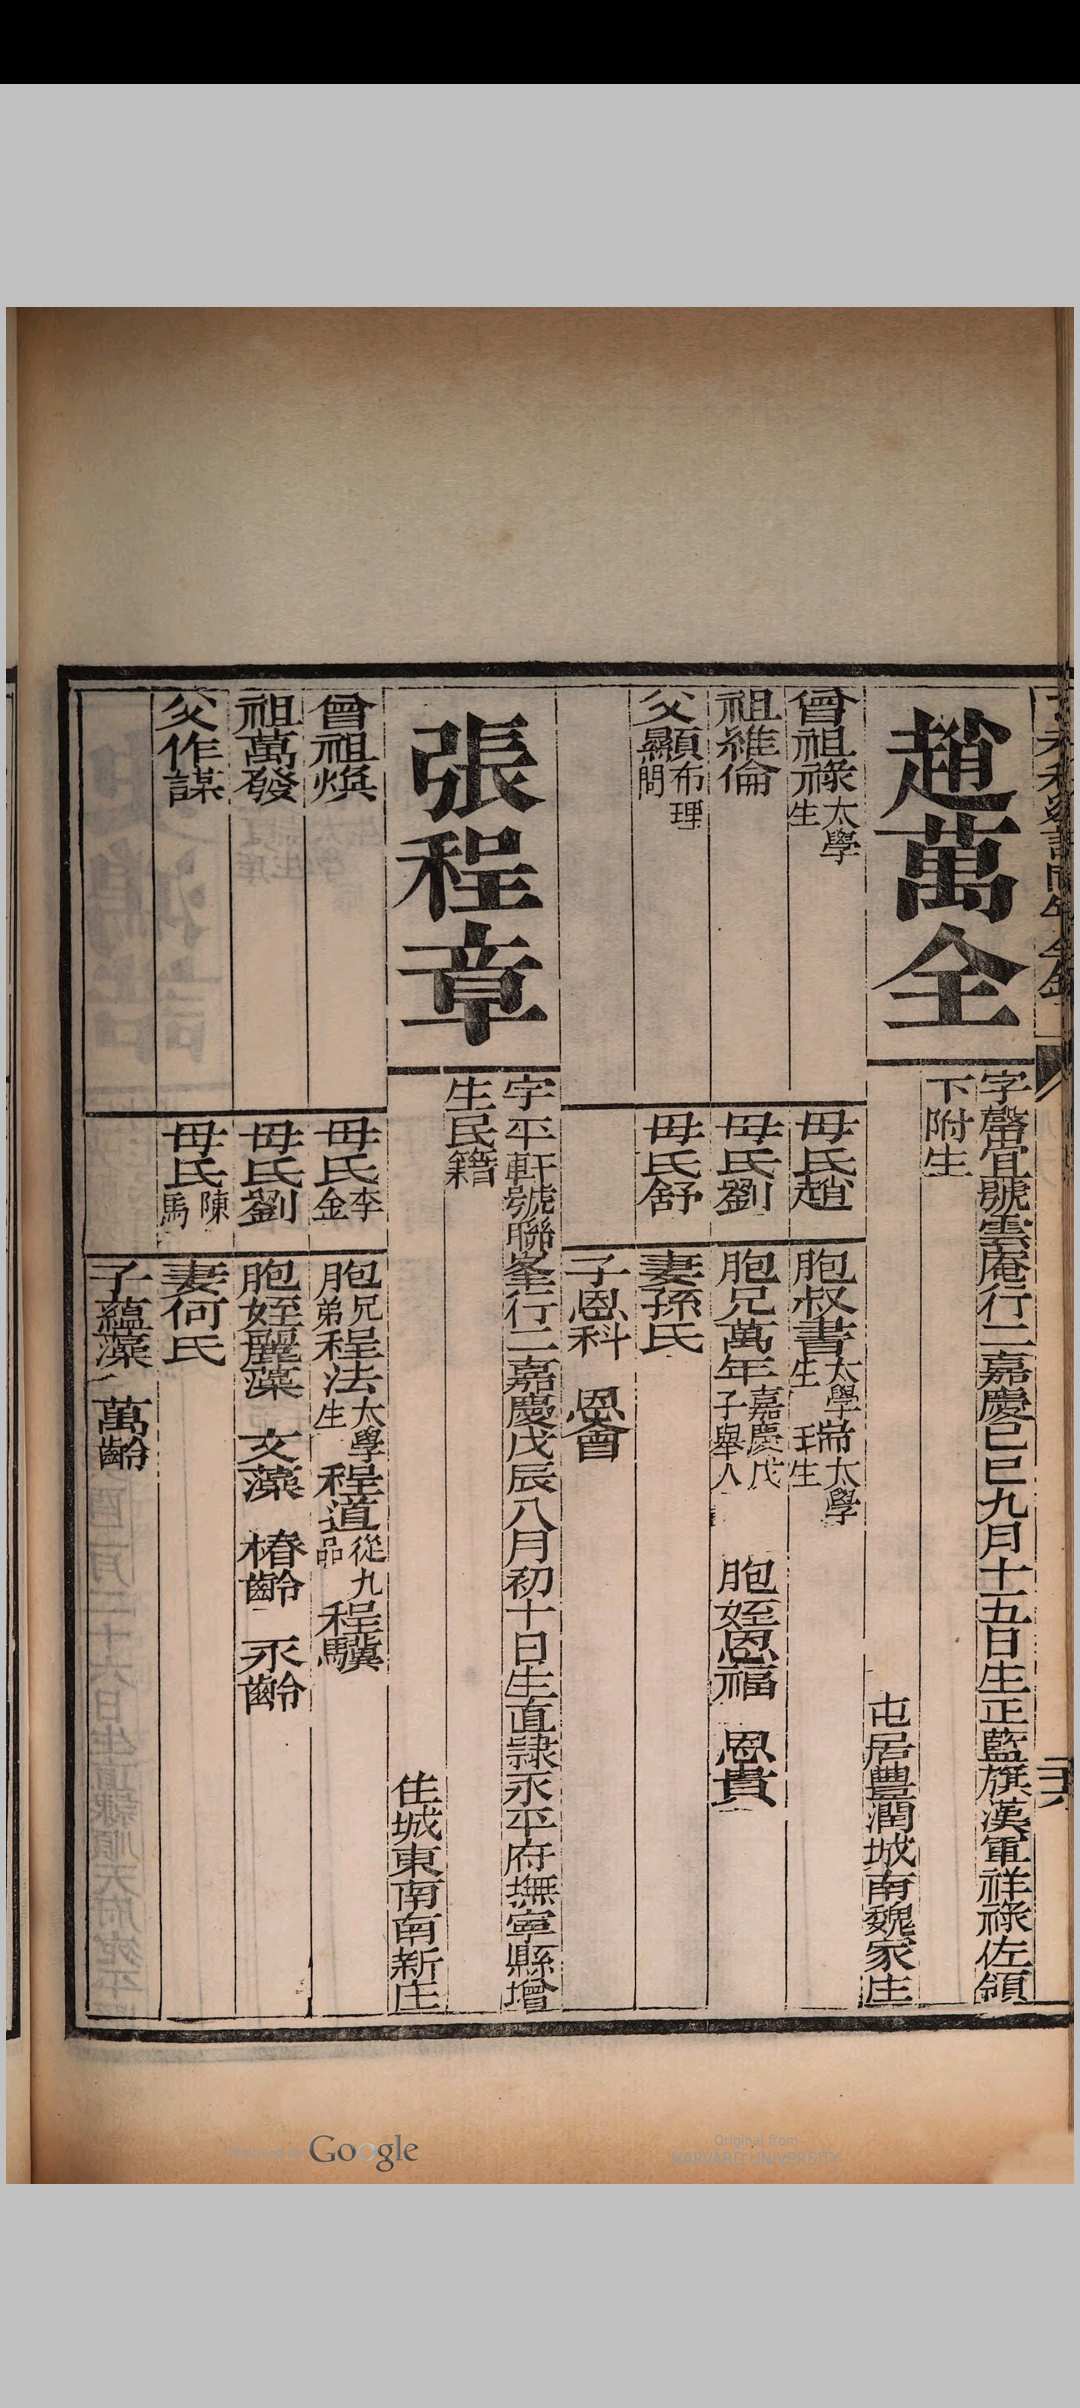 趙萬全
字馨宜號雲庵行二嘉慶己巳九月十五日生正藍旗漢軍祥祿佐領
下附生
屯居豐潤城南魏家庄
曾祖祿太學生
母氏趙
胞叔書太學生 瑞太學生
祖維倫
母氏劉
胞兄萬年嘉慶戊子舉人 胞姪恩福 恩貴
父顯布理間
母氏舒
妻孫氏
子恩科 恩會
張程章
字平軒號聯峯行二嘉慶戊辰八月初十日生直隸永平府撫寧縣增
生民籍
住城東南南新庄
曾祖煥
母氏李金
胞兄弟程法太學生 程道從九品 程驥
祖萬發
母氏劉
胞姪麗藻 文藻 椿齡 永齡
父作謀
母氏陳馬
妻何氏
子蘊藻 萬齡
Google
Original from
HARVARD UNIVERSITY